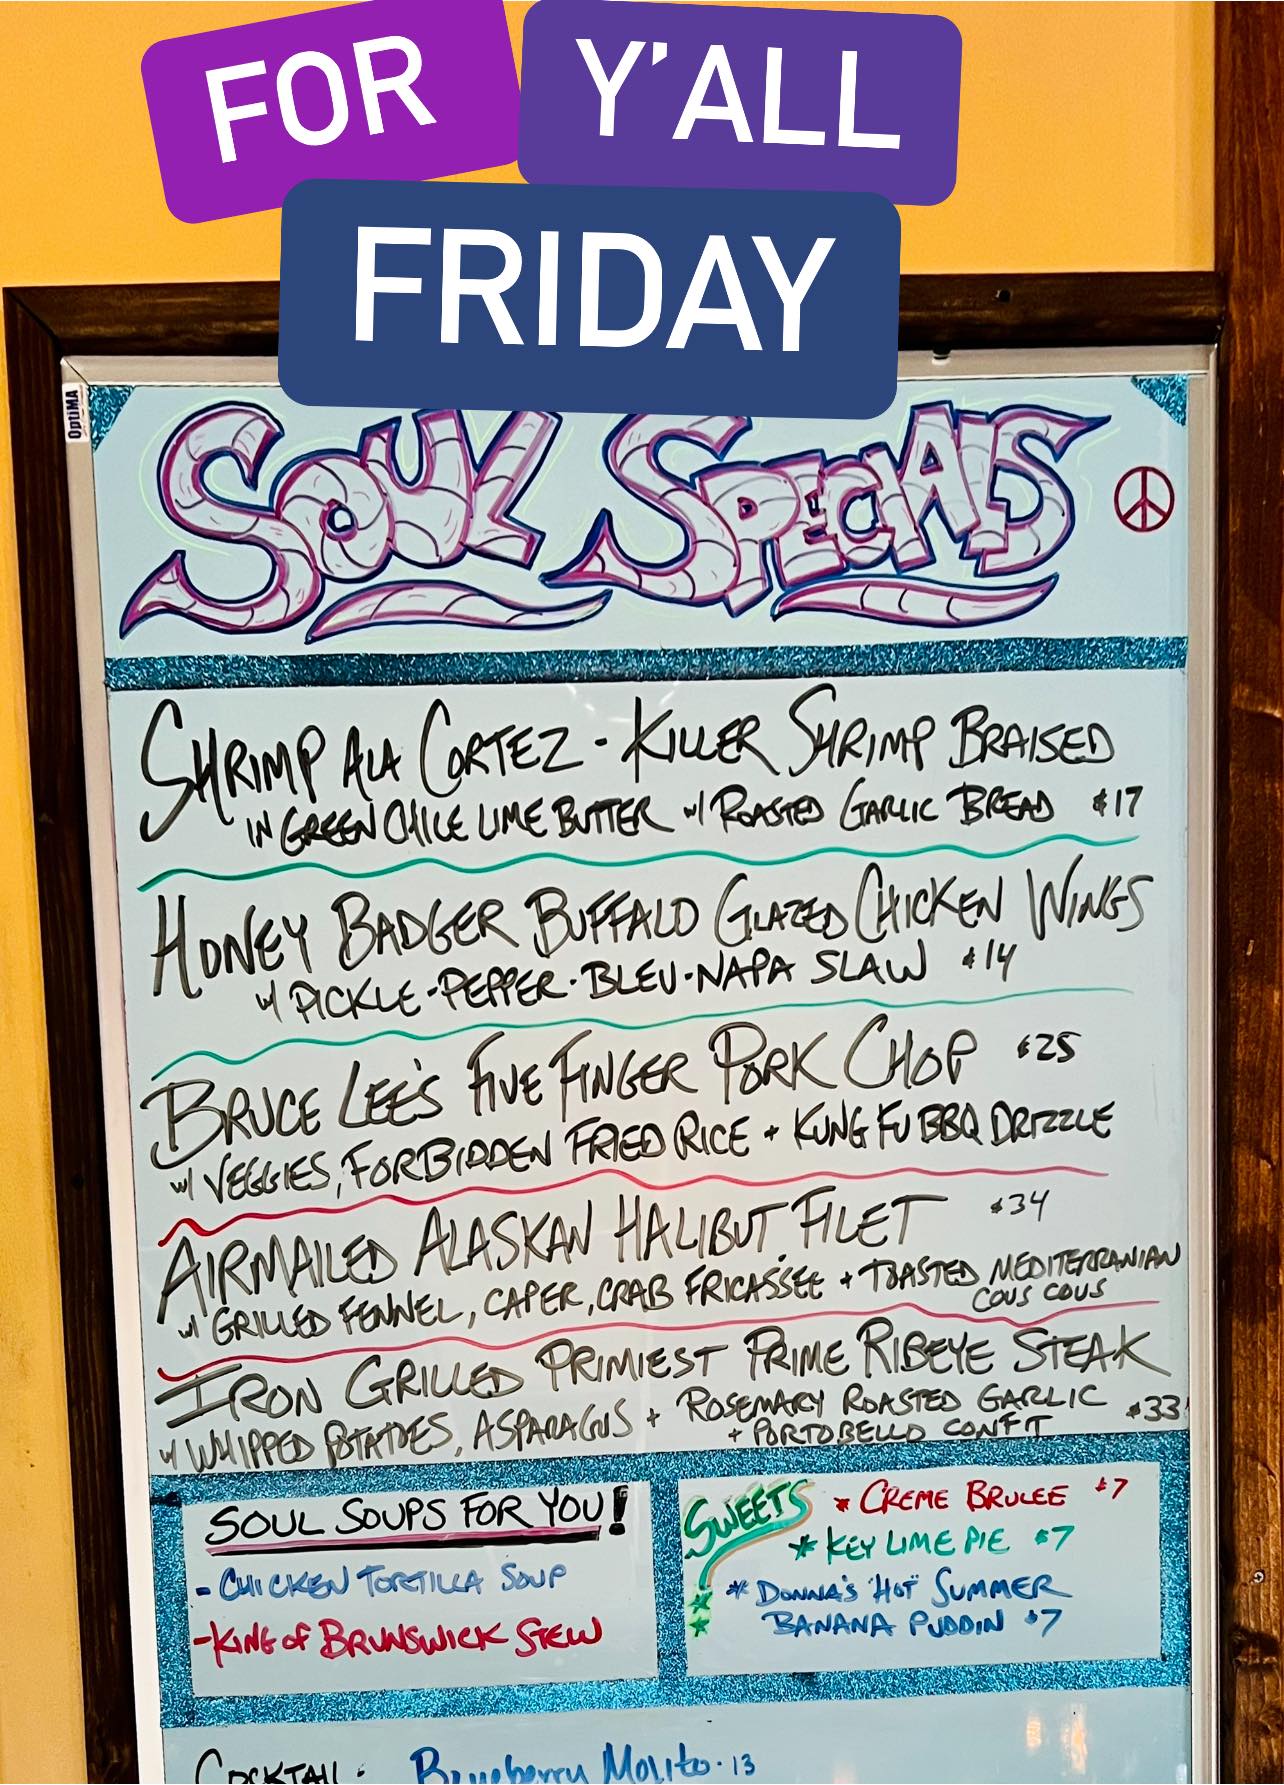 FOR Y'ALL
FRIDAY
OptiMA
SOUL SPECIALS
SHRIMP ALA CORTEZ - KILLER SHRIMP BRAISED
IN GREEN CHILE LIME BUTTER w/ ROASTED GARLIC BREAD $17
HONEY BADGER BUFFALO GLAZED CHICKEN WINGS
w/ PICKLE-PEPPER-BLEU-NAPA SLAW $14
BRUCE LEE'S FIVE FINGER PORK CHOP $25
w/ VEGGIES, FORBIDDEN FRIED RICE + KUNG FU BBQ DRIZZLE
AIRMAILED ALASKAN HALIBUT FILET $34
w/ GRILLED FENNEL, CAPER, CRAB FRICASSEE + TOASTED MEDITERRANIAN
COUS COUS
IRON GRILLED PRIMIEST PRIME RIBEYE STEAK
w/ WHIPPED POTATOES, ASPARAGUS + ROSEMARY ROASTED GARLIC $33
+ PORTOBELLO CONFIT
SOUL SOUPS FOR YOU!
- CHICKEN TORTILLA SOUP
- KING OF BRUNSWICK STEW
SWEETS * CREME BRULEE $7
* KEY LIME PIE $7
* DONNA'S "HOT" SUMMER
BANANA PUDDIN $7
COCKTAIL: Blueberry Mojito - 13